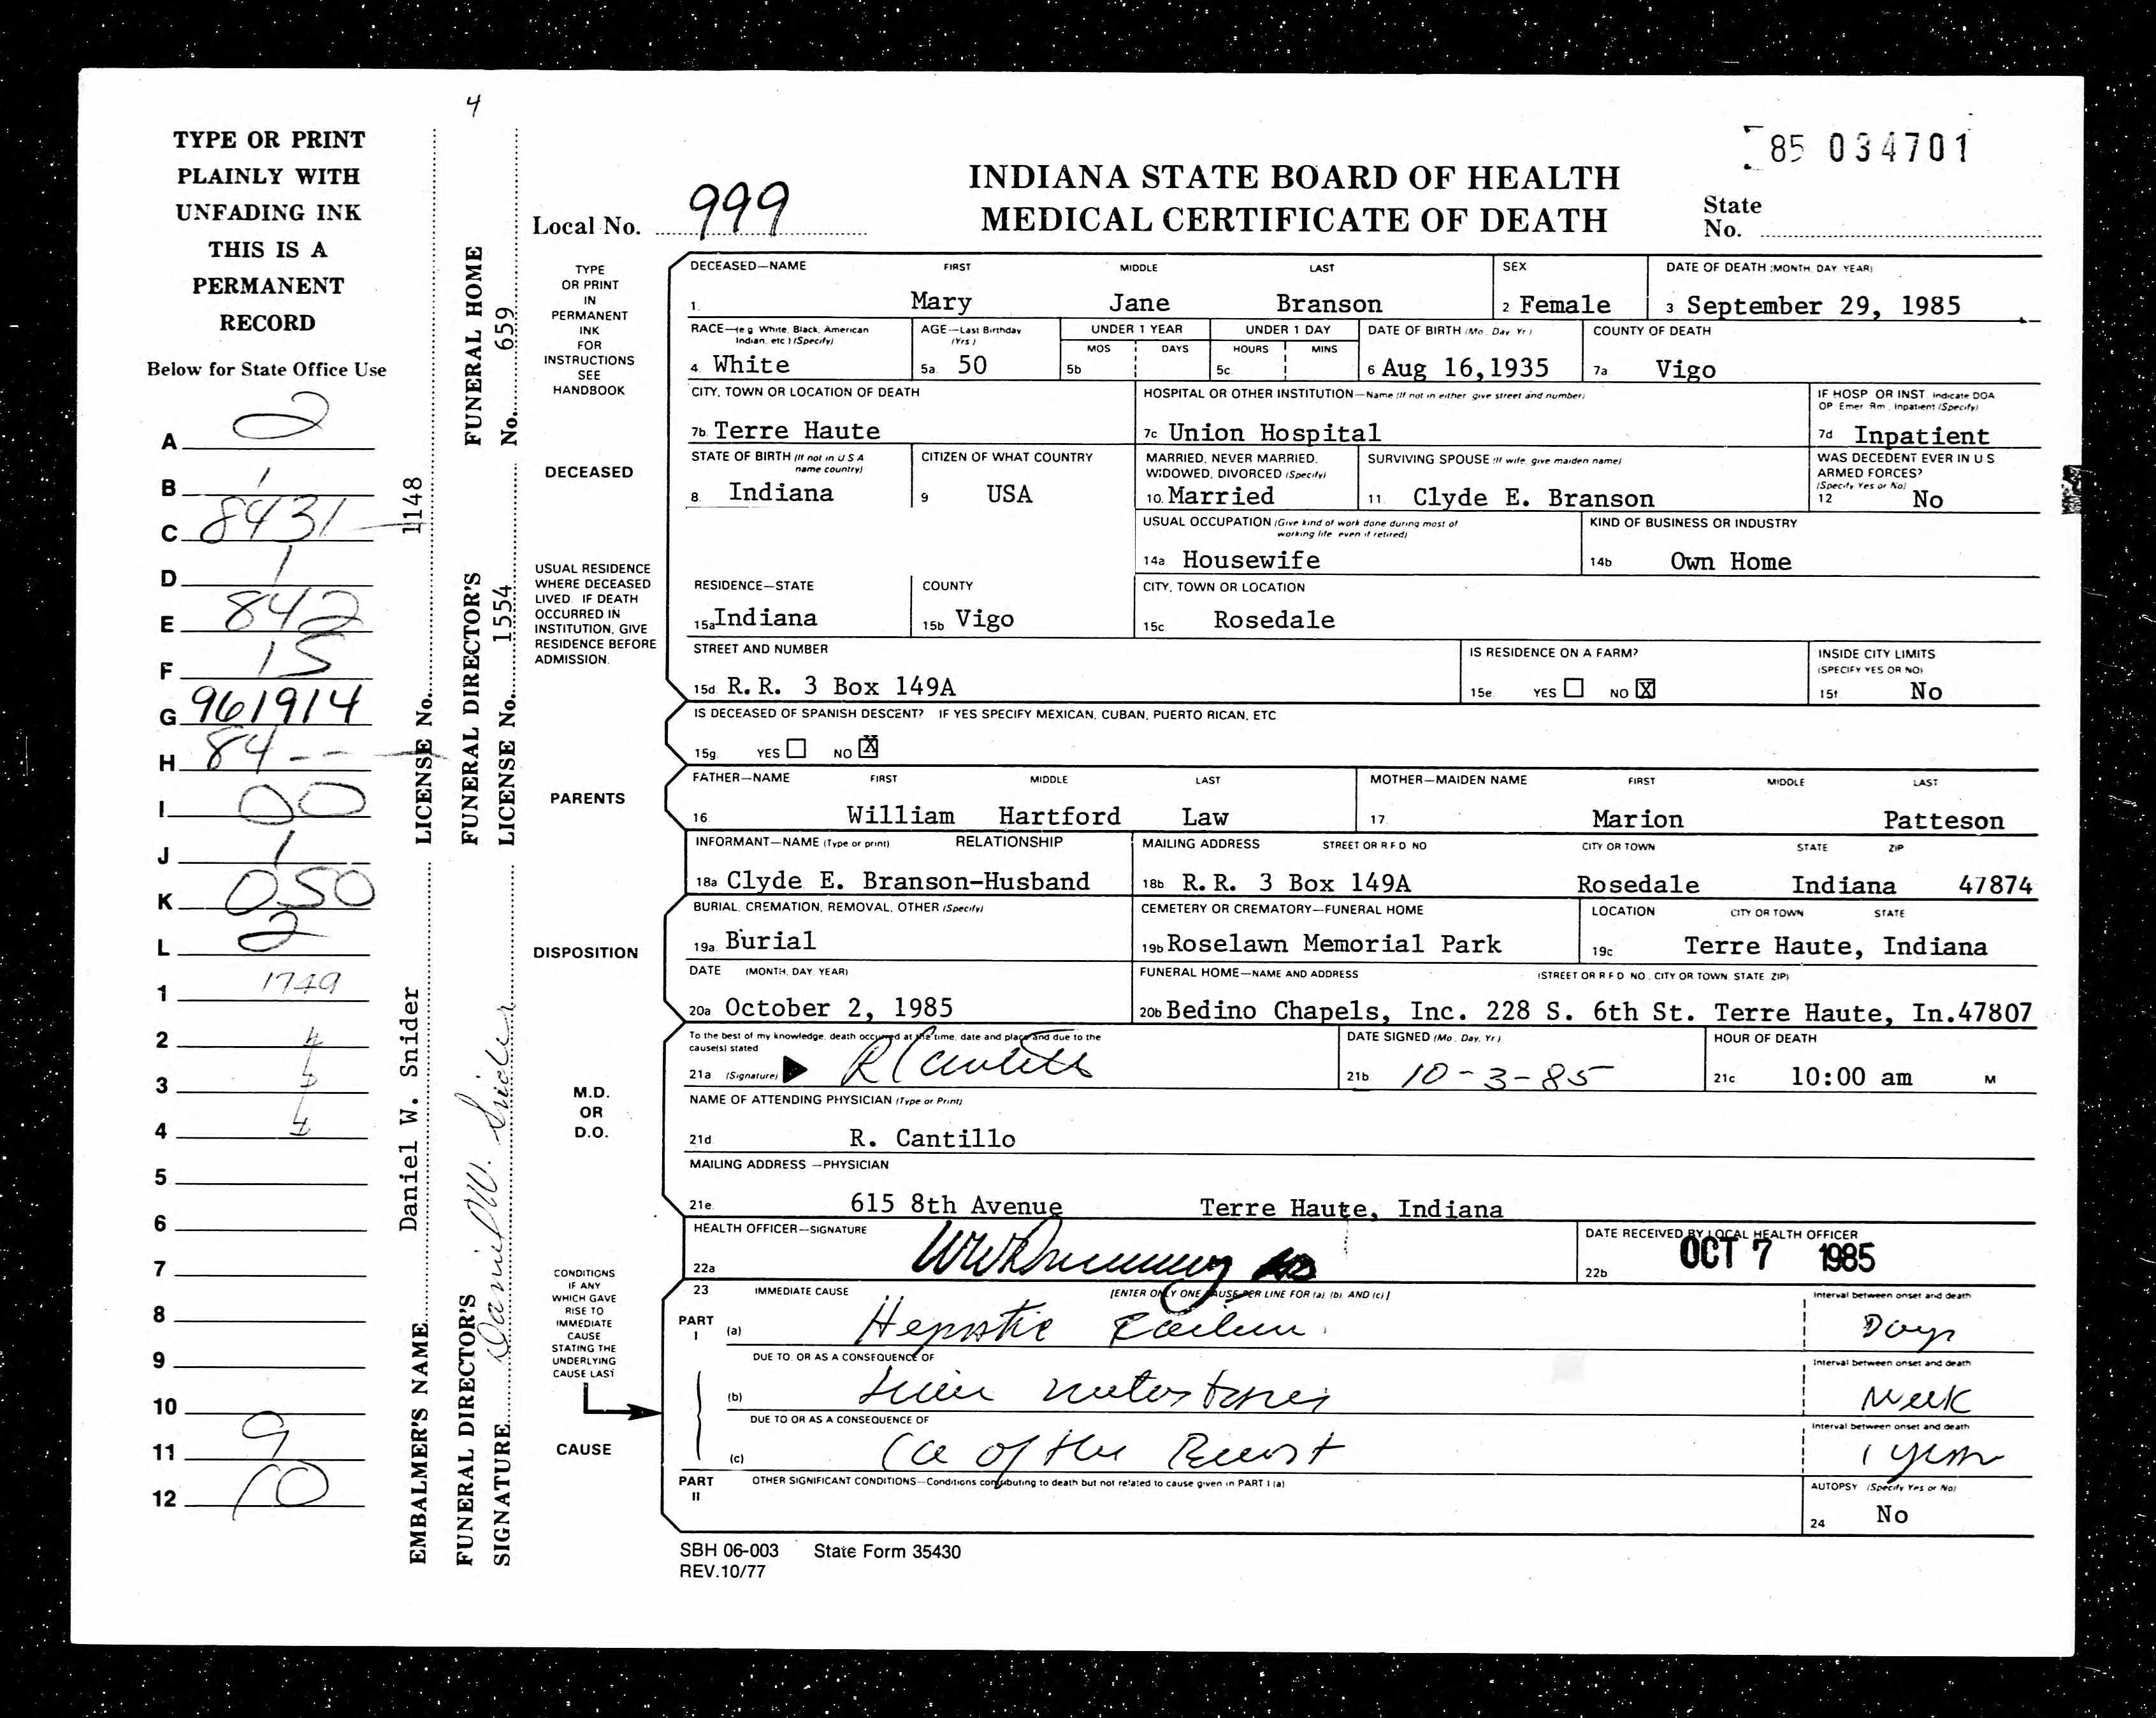 4
TYPE OR PRINT
PLAINLY WITH
UNFADING INK
THIS IS A
PERMANENT
RECORD
Below for State Office Use
A 2
B 1
C 8431
D 1
E 842
F 15
G 961914
H 84 - -
I 00
J 1
K 050
L 2
1 1749
2 4
3
4 4
5
6
7
8
9
10
11 9
12 10
EMBALMER'S NAME Daniel W. Snider LICENSE No. 1148
FUNERAL DIRECTOR'S SIGNATURE Daniel W. Snider
FUNERAL DIRECTOR'S LICENSE No. 1554
FUNERAL HOME No. 659
85 034701
INDIANA STATE BOARD OF HEALTH
MEDICAL CERTIFICATE OF DEATH
Local No. 999
State
No.
TYPE
OR PRINT
IN
PERMANENT
INK
FOR
INSTRUCTIONS
SEE
HANDBOOK
DECEASED—NAME FIRST MIDDLE LAST SEX DATE OF DEATH (MONTH, DAY, YEAR)
1. Mary Jane Branson 2 Female 3 September 29, 1985
RACE—(e g White, Black, American Indian, etc) (Specify) AGE—Last Birthday (Yrs) UNDER 1 YEAR UNDER 1 DAY DATE OF BIRTH (Mo. Day. Yr) COUNTY OF DEATH
MOS DAYS HOURS MINS
4. White 5a. 50 5b 5c. 6 Aug 16,1935 7a Vigo
CITY, TOWN OR LOCATION OF DEATH HOSPITAL OR OTHER INSTITUTION—Name (If not in either give street and number) IF HOSP OR INST. Indicate DOA OP Emer Rm, Inpatient (Specify)
7b. Terre Haute 7c Union Hospital 7d Inpatient
DECEASED
STATE OF BIRTH (If not in U S A name country) CITIZEN OF WHAT COUNTRY MARRIED, NEVER MARRIED, WIDOWED, DIVORCED (Specify) SURVIVING SPOUSE (If wife, give maiden name) WAS DECEDENT EVER IN U S ARMED FORCES? (Specify Yes or No)
8. Indiana 9 USA 10. Married 11. Clyde E. Branson 12 No
USUAL OCCUPATION (Give kind of work done during most of working life even if retired) KIND OF BUSINESS OR INDUSTRY
14a Housewife 14b Own Home
USUAL RESIDENCE
WHERE DECEASED
LIVED. IF DEATH
OCCURRED IN
INSTITUTION, GIVE
RESIDENCE BEFORE
ADMISSION.
RESIDENCE—STATE COUNTY CITY, TOWN OR LOCATION
15a Indiana 15b Vigo 15c Rosedale
STREET AND NUMBER IS RESIDENCE ON A FARM? INSIDE CITY LIMITS (SPECIFY YES OR NO)
15d. R.R. 3 Box 149A 15e YES NO X 15f No
IS DECEASED OF SPANISH DESCENT? IF YES SPECIFY MEXICAN, CUBAN, PUERTO RICAN, ETC
15g. YES NO X
PARENTS
FATHER—NAME FIRST MIDDLE LAST MOTHER—MAIDEN NAME FIRST MIDDLE LAST
16 William Hartford Law 17. Marion Patteson
INFORMANT—NAME (Type or print) RELATIONSHIP MAILING ADDRESS STREET OR R F D NO CITY OR TOWN STATE ZIP
18a Clyde E. Branson-Husband 18b R.R. 3 Box 149A Rosedale Indiana 47874
DISPOSITION
BURIAL, CREMATION, REMOVAL, OTHER (Specify) CEMETERY OR CREMATORY—FUNERAL HOME LOCATION CITY OR TOWN STATE
19a. Burial 19b Roselawn Memorial Park 19c Terre Haute, Indiana
DATE (MONTH, DAY, YEAR) FUNERAL HOME—NAME AND ADDRESS (STREET OR R F D NO. CITY OR TOWN STATE ZIP)
20a October 2, 1985 20b Bedino Chapels, Inc. 228 S. 6th St. Terre Haute, In.47807
M.D.
OR
D.O.
To the best of my knowledge, death occurred at the time, date and place and due to the cause(s) stated DATE SIGNED (Mo. Day, Yr) HOUR OF DEATH
21a (Signature) 21b. 10-3-85 21c 10:00 am M
NAME OF ATTENDING PHYSICIAN (Type or Print)
21d R. Cantillo
MAILING ADDRESS —PHYSICIAN
21e. 615 8th Avenue Terre Haute, Indiana
HEALTH OFFICER—SIGNATURE DATE RECEIVED BY LOCAL HEALTH OFFICER
22a 22b OCT 7 1985
CONDITIONS
IF ANY
WHICH GAVE
RISE TO
IMMEDIATE
CAUSE
STATING THE
UNDERLYING
CAUSE LAST
CAUSE
23. IMMEDIATE CAUSE [ENTER ONLY ONE CAUSE PER LINE FOR (a), (b), AND (c)] Interval between onset and death
PART I (a) Hepatic Failure Days
DUE TO, OR AS A CONSEQUENCE OF Interval between onset and death
(b) Liver metastases Week
DUE TO OR AS A CONSEQUENCE OF Interval between onset and death
(c) Ca of the Breast 1 year
PART II OTHER SIGNIFICANT CONDITIONS—Conditions contributing to death but not related to cause given in PART I (a) AUTOPSY (Specify Yes or No)
24 No
SBH 06-003 State Form 35430
REV.10/77